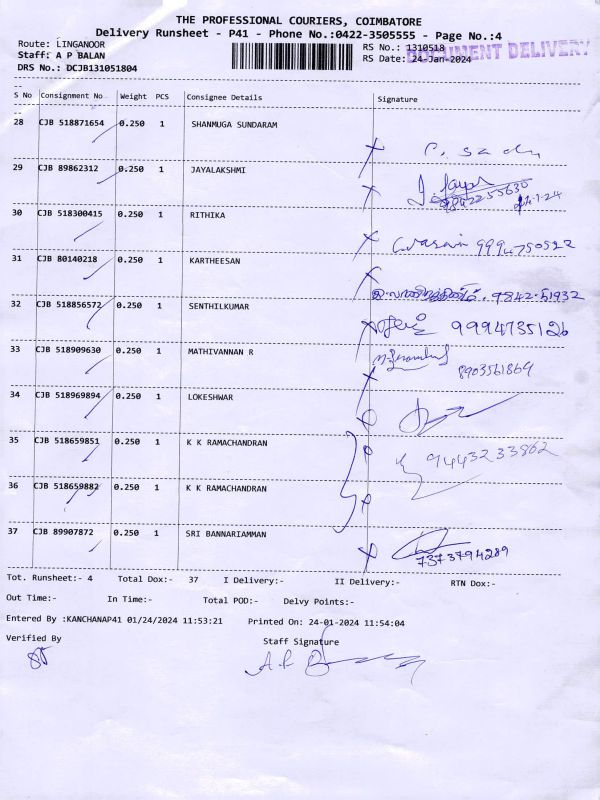 THE PROFESSIONAL COURIERS, COIMBATORE
Delivery Runsheet - P41 - Phone No.:0422-3505555 - Page No.:4
Route: LINGANOOR RS No.: 1310518
Staff: A P BALAN RS Date: 24-Jan-2024
DOCUMENT DELIVERY
DRS No.: DCJB131051804
S No Consignment No Weight PCS Consignee Details Signature
28 CJB 518871654 0.250 1 SHANMUGA SUNDARAM
29 CJB 89862312 0.250 1 JAYALAKSHMI
9842255630 24-1-24
30 CJB 518300415 0.250 1 RITHIKA
31 CJB 80140218 0.250 1 KARTHEESAN
9842-51932
32 CJB 518856572 0.250 1 SENTHILKUMAR
9994735126
33 CJB 518909630 0.250 1 MATHIVANNAN R
8903561864
34 CJB 518969894 0.250 1 LOKESHWAR
35 CJB 518659851 0.250 1 K K RAMACHANDRAN
9443233862
36 CJB 518659882 0.250 1 K K RAMACHANDRAN
37 CJB 89907872 0.250 1 SRI BANNARIAMMAN
7373794289
Tot. Runsheet:- 4 Total Dox:- 37 I Delivery:- II Delivery:- RTN Dox:-
Out Time:- In Time:- Total POD:- Delvy Points:-
Entered By :KANCHANAP41 01/24/2024 11:53:21 Printed On: 24-01-2024 11:54:04
Verified By Staff Signature